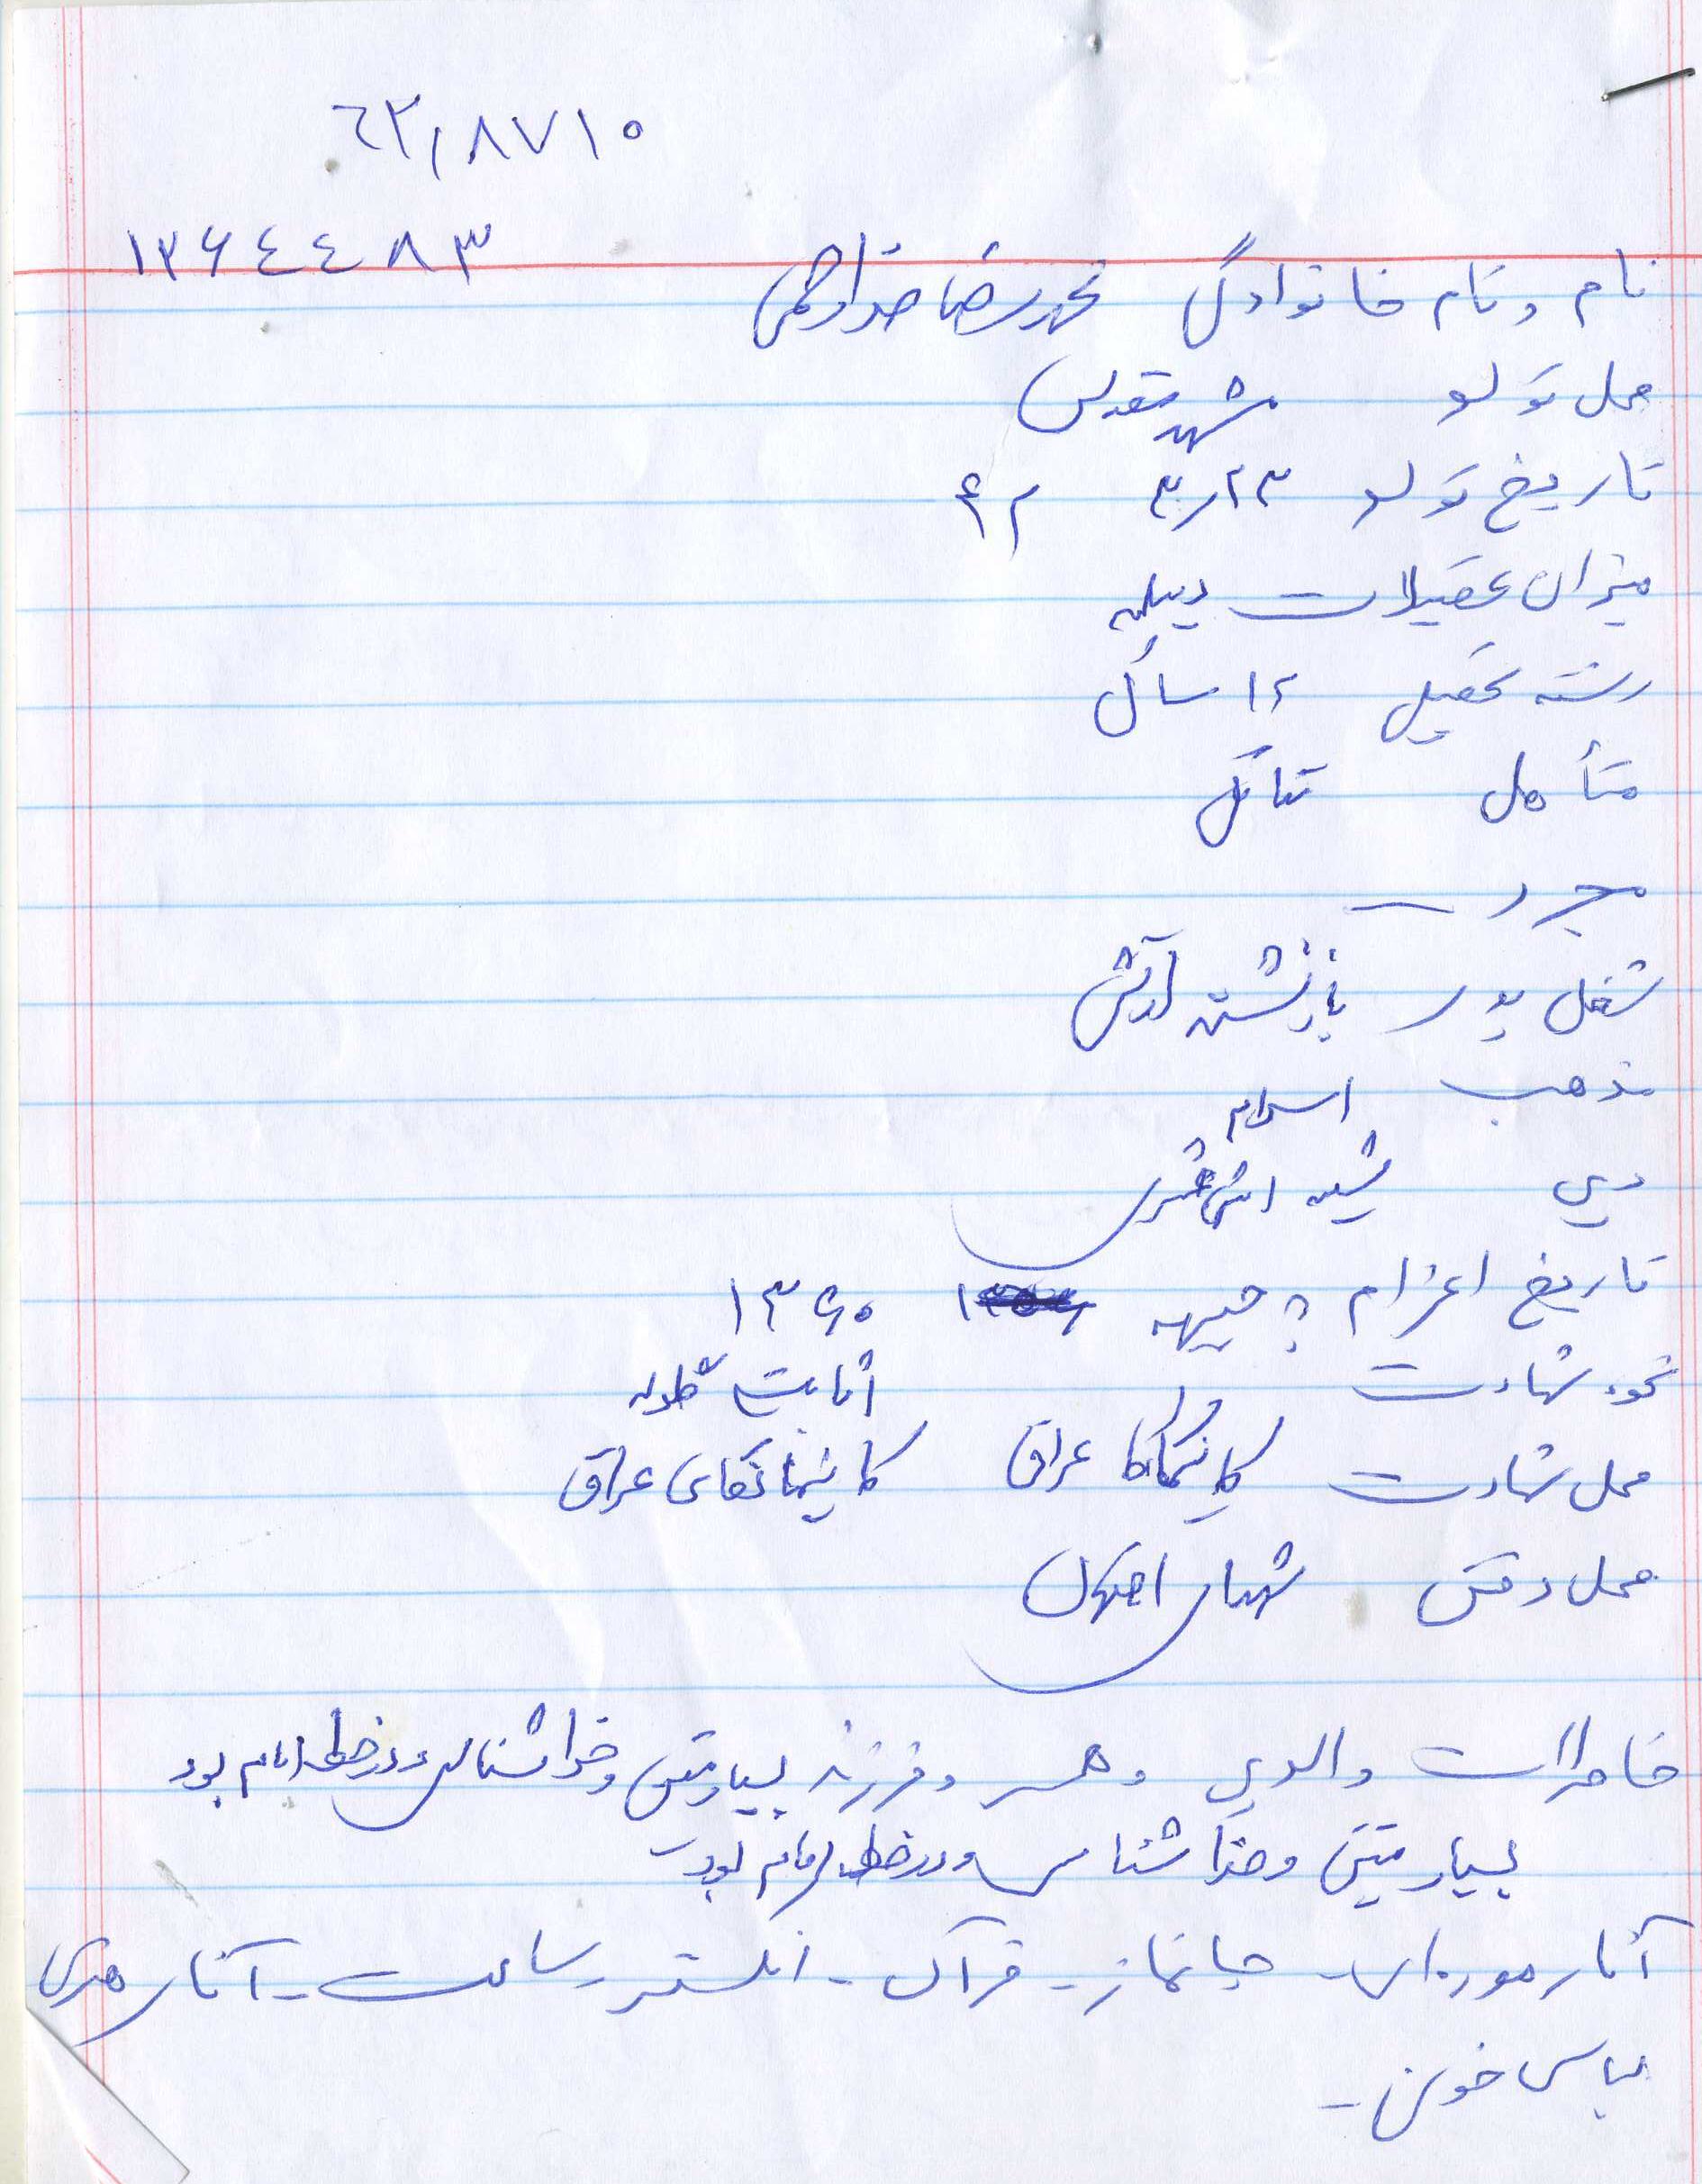 ٦٣٫٨٧١٠
١٣۶٤٤٨٣
نام و نام خانوادگی محمدرضا خدارحمی
محل تولد مشهد مقدس
تاریخ تولد ٢٣ر٣ ۴٢
میزان تحصیلات دیپلم
رشته تحصیلی ١٢ سال
متأهل متاهل
مجرد —
شغل پدر بازنشسته ارتش
مذهب اسلام
دین شیعه اثنی عشری
تاریخ اعزام به جبهه ١٣۶٠
نحوه شهادت اثابت گلوله
محل شهادت عراق کانیمانگای عراق
محل دفن شهدای
خاطرات والدین و همسر و فرزند بسیار متین و خداشناس و در خط امام بود
بسیار متین و خدا شناس و در خط امام بود
آثار موزه‌ای - جانماز - قرآن - انگشتر - ساعت - آثار هنری
لباس خونی -